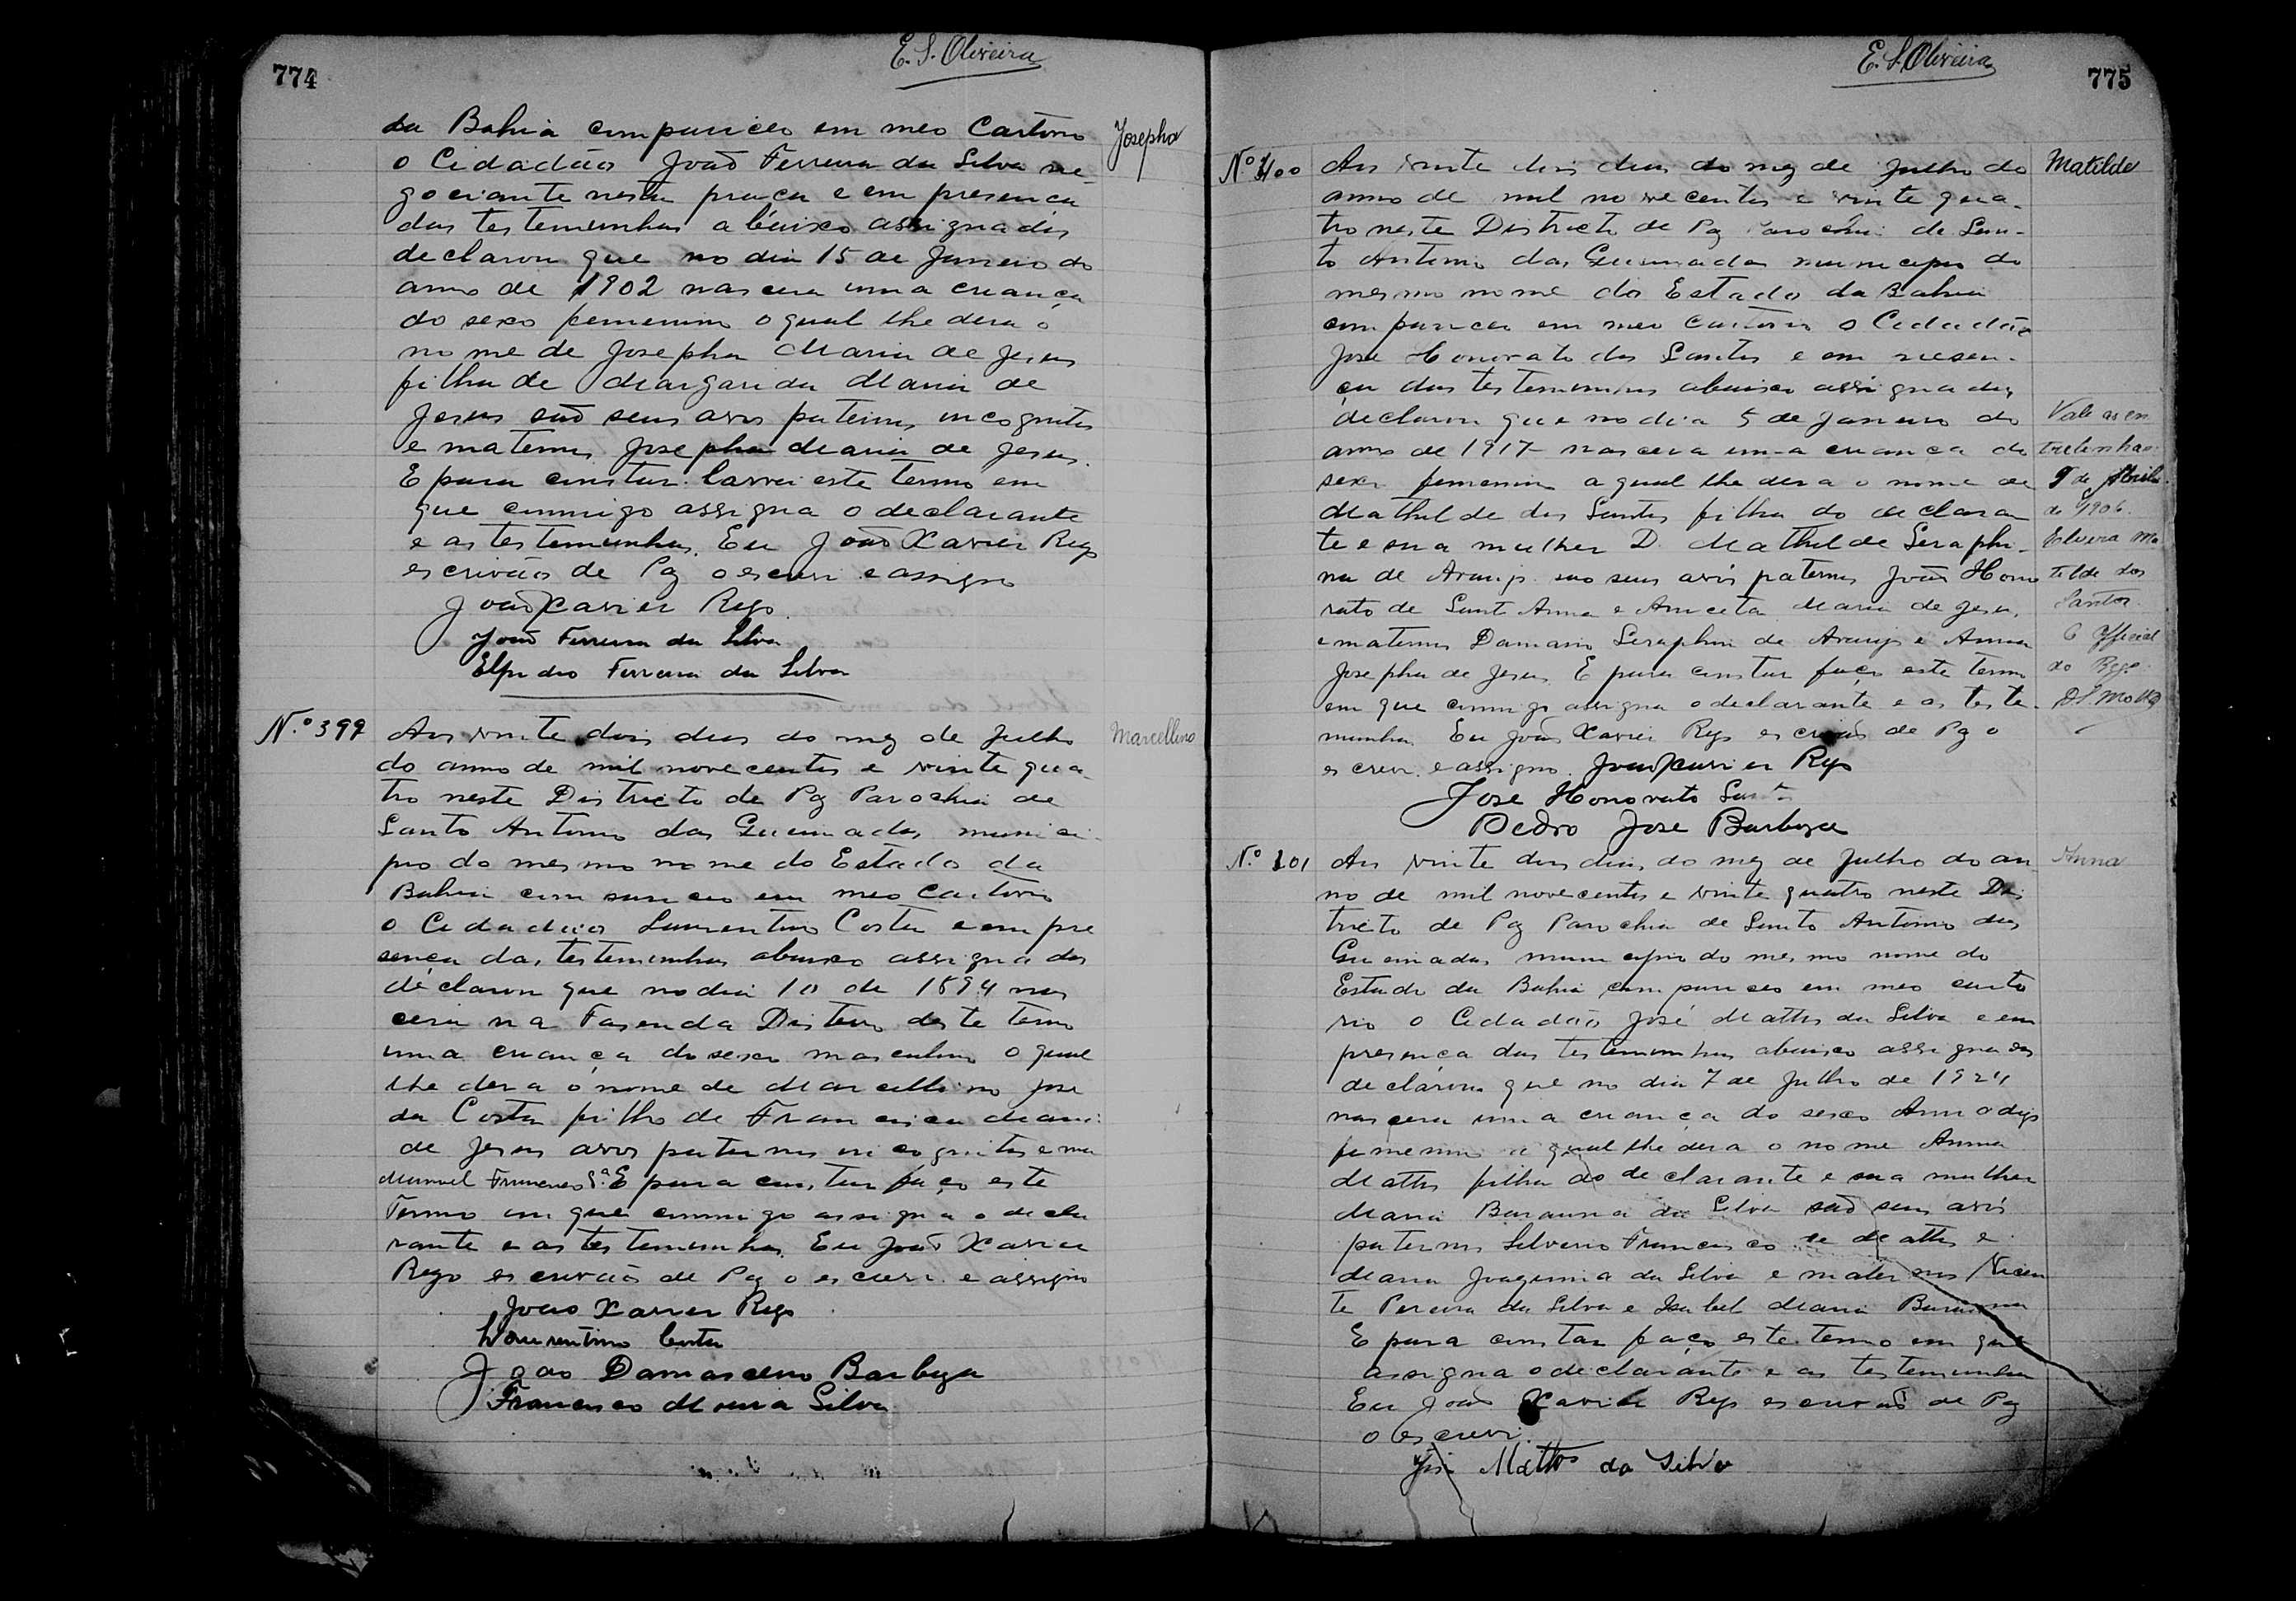 774
E. S. Oliveira
da Bahia compariceo em meo Cartorio
Josepha
o Cidadão João Ferreira da Silva ne-
gociante nesta praça e em presença
das testemunhas abaixo assignadas
declarou que no dia 15 de Janeiro do
anno de 1902 nascera uma criança
do sexo femenino o qual lhe dera o
nome de Josepha Maria de Jesus
filha de Margarida Maria de
Jesus são seus avos paternos incognitos
e maternos Josepha Maria de Jesus.
E para constar lavrei este termo em
que commigo assigna o declarante
e as testemunhas. Eu João Xavier Rego
escrivão de Paz o escrevi e assigno
João Xavier Rego
João Ferreira da Silva
Elpidio Ferreira da Silva
N.º 399
Aos vinte dois dias do mez de Julho
Marcellino
do anno de mil novecentos e vinte qua-
tro neste Districto de Paz Parochia de
Santo Antonio das Queimadas munici-
pio do mesmo nome do Estado da
Bahia compariceo em meo Cartorio
o Cidadão Laurentino Costa e em pre
sença das testemunhas abaixo assignadas
declarou que no dia 10 de 1894 nas
cera na Fasenda Desterro deste termo
uma criança do sexo masculino o qual
lhe dera o nome de Marcellino José
da Costa filho de Francisca Maria
de Jesus avos paternos incognitos e ma
Manoel Francisco Sª E para constar faço este
Termo em que commigo assigna o decla
rante e as testemunhas. Eu João Xavier
Rego escrivão de Paz o escrevi e assigno
João Xavier Rego
Laurentino Costa
João Damasceno Barboza
Francisco Moura Silva
E. S. Oliveira
775
N.º 400
Aos vinte dois dias do mez de Julho do
Matilde
anno de mil novecentos e vinte qua-
tro neste Districto de Paz Parochia de San-
to Antonio das Queimadas municipio do
mesmo nome do Estado da Bahia
compariceo em meu Cartorio o Cidadão
José Honorato dos Santos e em presen-
ça das testemunhas abaixo assignadas
declarou que no dia 5 de Janeiro do
anno de 1917 nascera uma criança do
sexo femenino a qual lhe dera o nome de
Mathilde dos Santos filha do declaran
te e sua mulher D. Mathilde Seraphi-
na de Araujo sao seus avós paternos João Hono
rato de Sant Anna e Anniceta Maria de Jesus,
e maternos Damasio Seraphim de Araujo e Anna
Josepha de Jesus. E para constar faço este termo
em que commigo assigna o declarante e as teste-
munhas Eu João Xavier Rego escrivão de Paz o
escrevi e assigno. João Xavier Rego
José Honorato Santos
Pedro José Barboza
Vale as en
trelinhas
9 de Abril
de 1906.
Elvira Ma
tilde dos
Santos.
O Official
do Reg.
D. S. Motta
N.º 401
Aos vinte dois dias do mez de Julho do an
Anna
no de mil novecentos e vinte quatro neste Dis
tricto de Paz Parochia de Santo Antonio das
Queimadas municipio do mesmo nome do
Estado da Bahia compariceo em meo carto
rio o Cidadão José Mattos da Silva e em
presença das testemunhas abaixo assignadas
declarou que no dia 7 de Julho de 1924
nascera uma criança do sexo Anna digo
femenino a qual lhe dera o nome Anna
Mattos filha do declarante e sua mulher
Maria Barauna da Silva são seus avós
paternos Silverio Francisco de Mattos e
Maria Joaquina da Silva e maternos Vicen
te Pereira da Silva e Isabel Maria Barauna
E para constar faço este termo em que
assigna o declarante e as testemunhas
Eu João Xavier Rego escrivão de Paz
o escrevi.
José Mattos da Silva